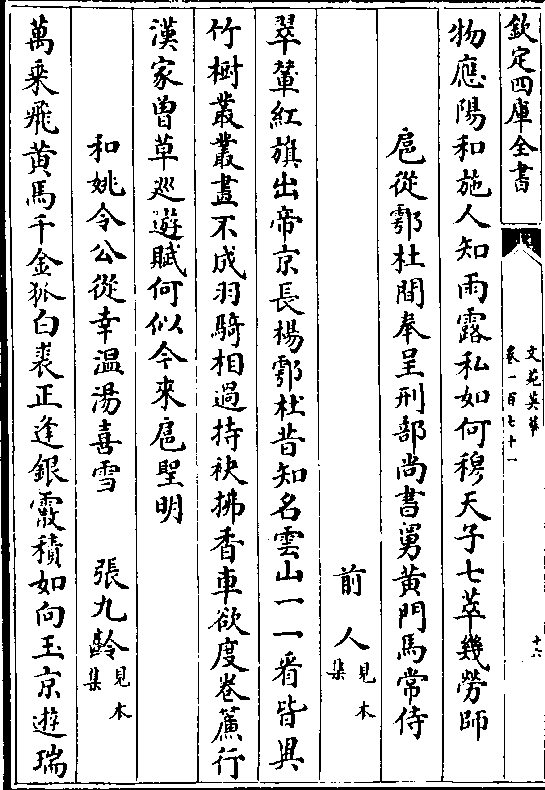 欽定四庫全書
文苑英華
卷一百七十一
十六
物應陽和施人知雨露私如何穆天子七萃幾勞師
扈從鄠杜間奉呈刑部尚書舅黃門馬常侍
前人見本集
翠輦紅旗出帝京長楊鄠杜昔知名雲山一一看皆異
竹樹叢叢畫不成羽騎相過持袂拂香車欲度卷簾行
漢家曾草巡遊賦何似今來扈聖明
和姚令公從幸温湯喜雪 張九齡見本集
萬乘飛黃馬千金狐白裘正逢銀霰積如向玉京遊瑞